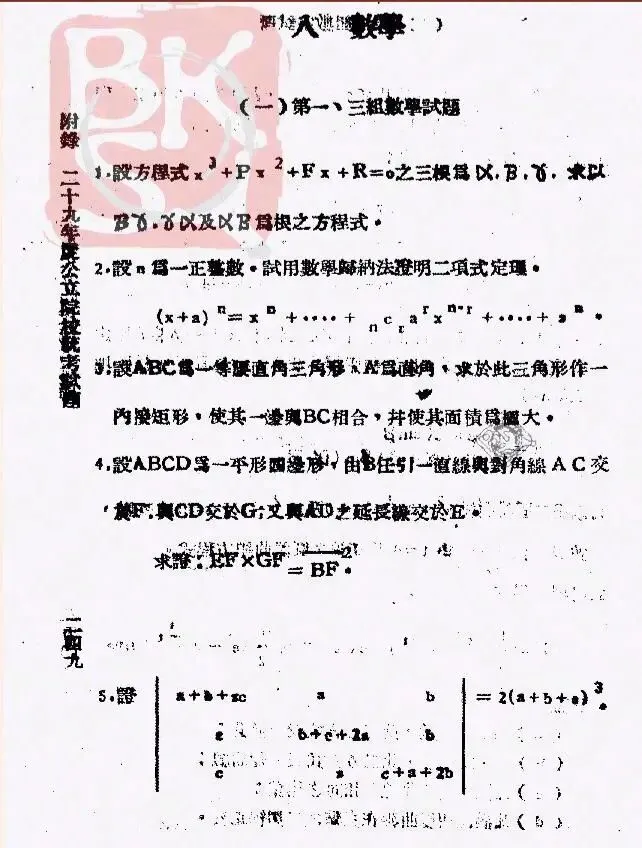 八 數學
(一)第一、三組數學試題
附錄 二十九年度公立院校統考試題
1.設方程式x³+Px²+Fx+R=o之三根爲α.β.γ.求以
βγ.γα及αβ爲根之方程式。
2.設n爲一正整數。試用數學歸納法證明二項式定理。
(x+a)ⁿ=xⁿ+····+ₙcᵣaʳxⁿ⁻ʳ+····+aⁿ。
3.設ABC爲一等腰直角三角形,A爲直角,求於此三角形作一
內接矩形,使其一邊與BC相合,幷使其面積爲極大。
4.設ABCD爲一平形四邊形,由B任引一直線與對角線AC交
於F,與CD交於G;又與AD之延長線交於E。
求證:EF×GF=BF²。
二四九
5.證
a+b+2c a b =2(a+b+c)³。
c b+c+2a b
c a c+a+2b